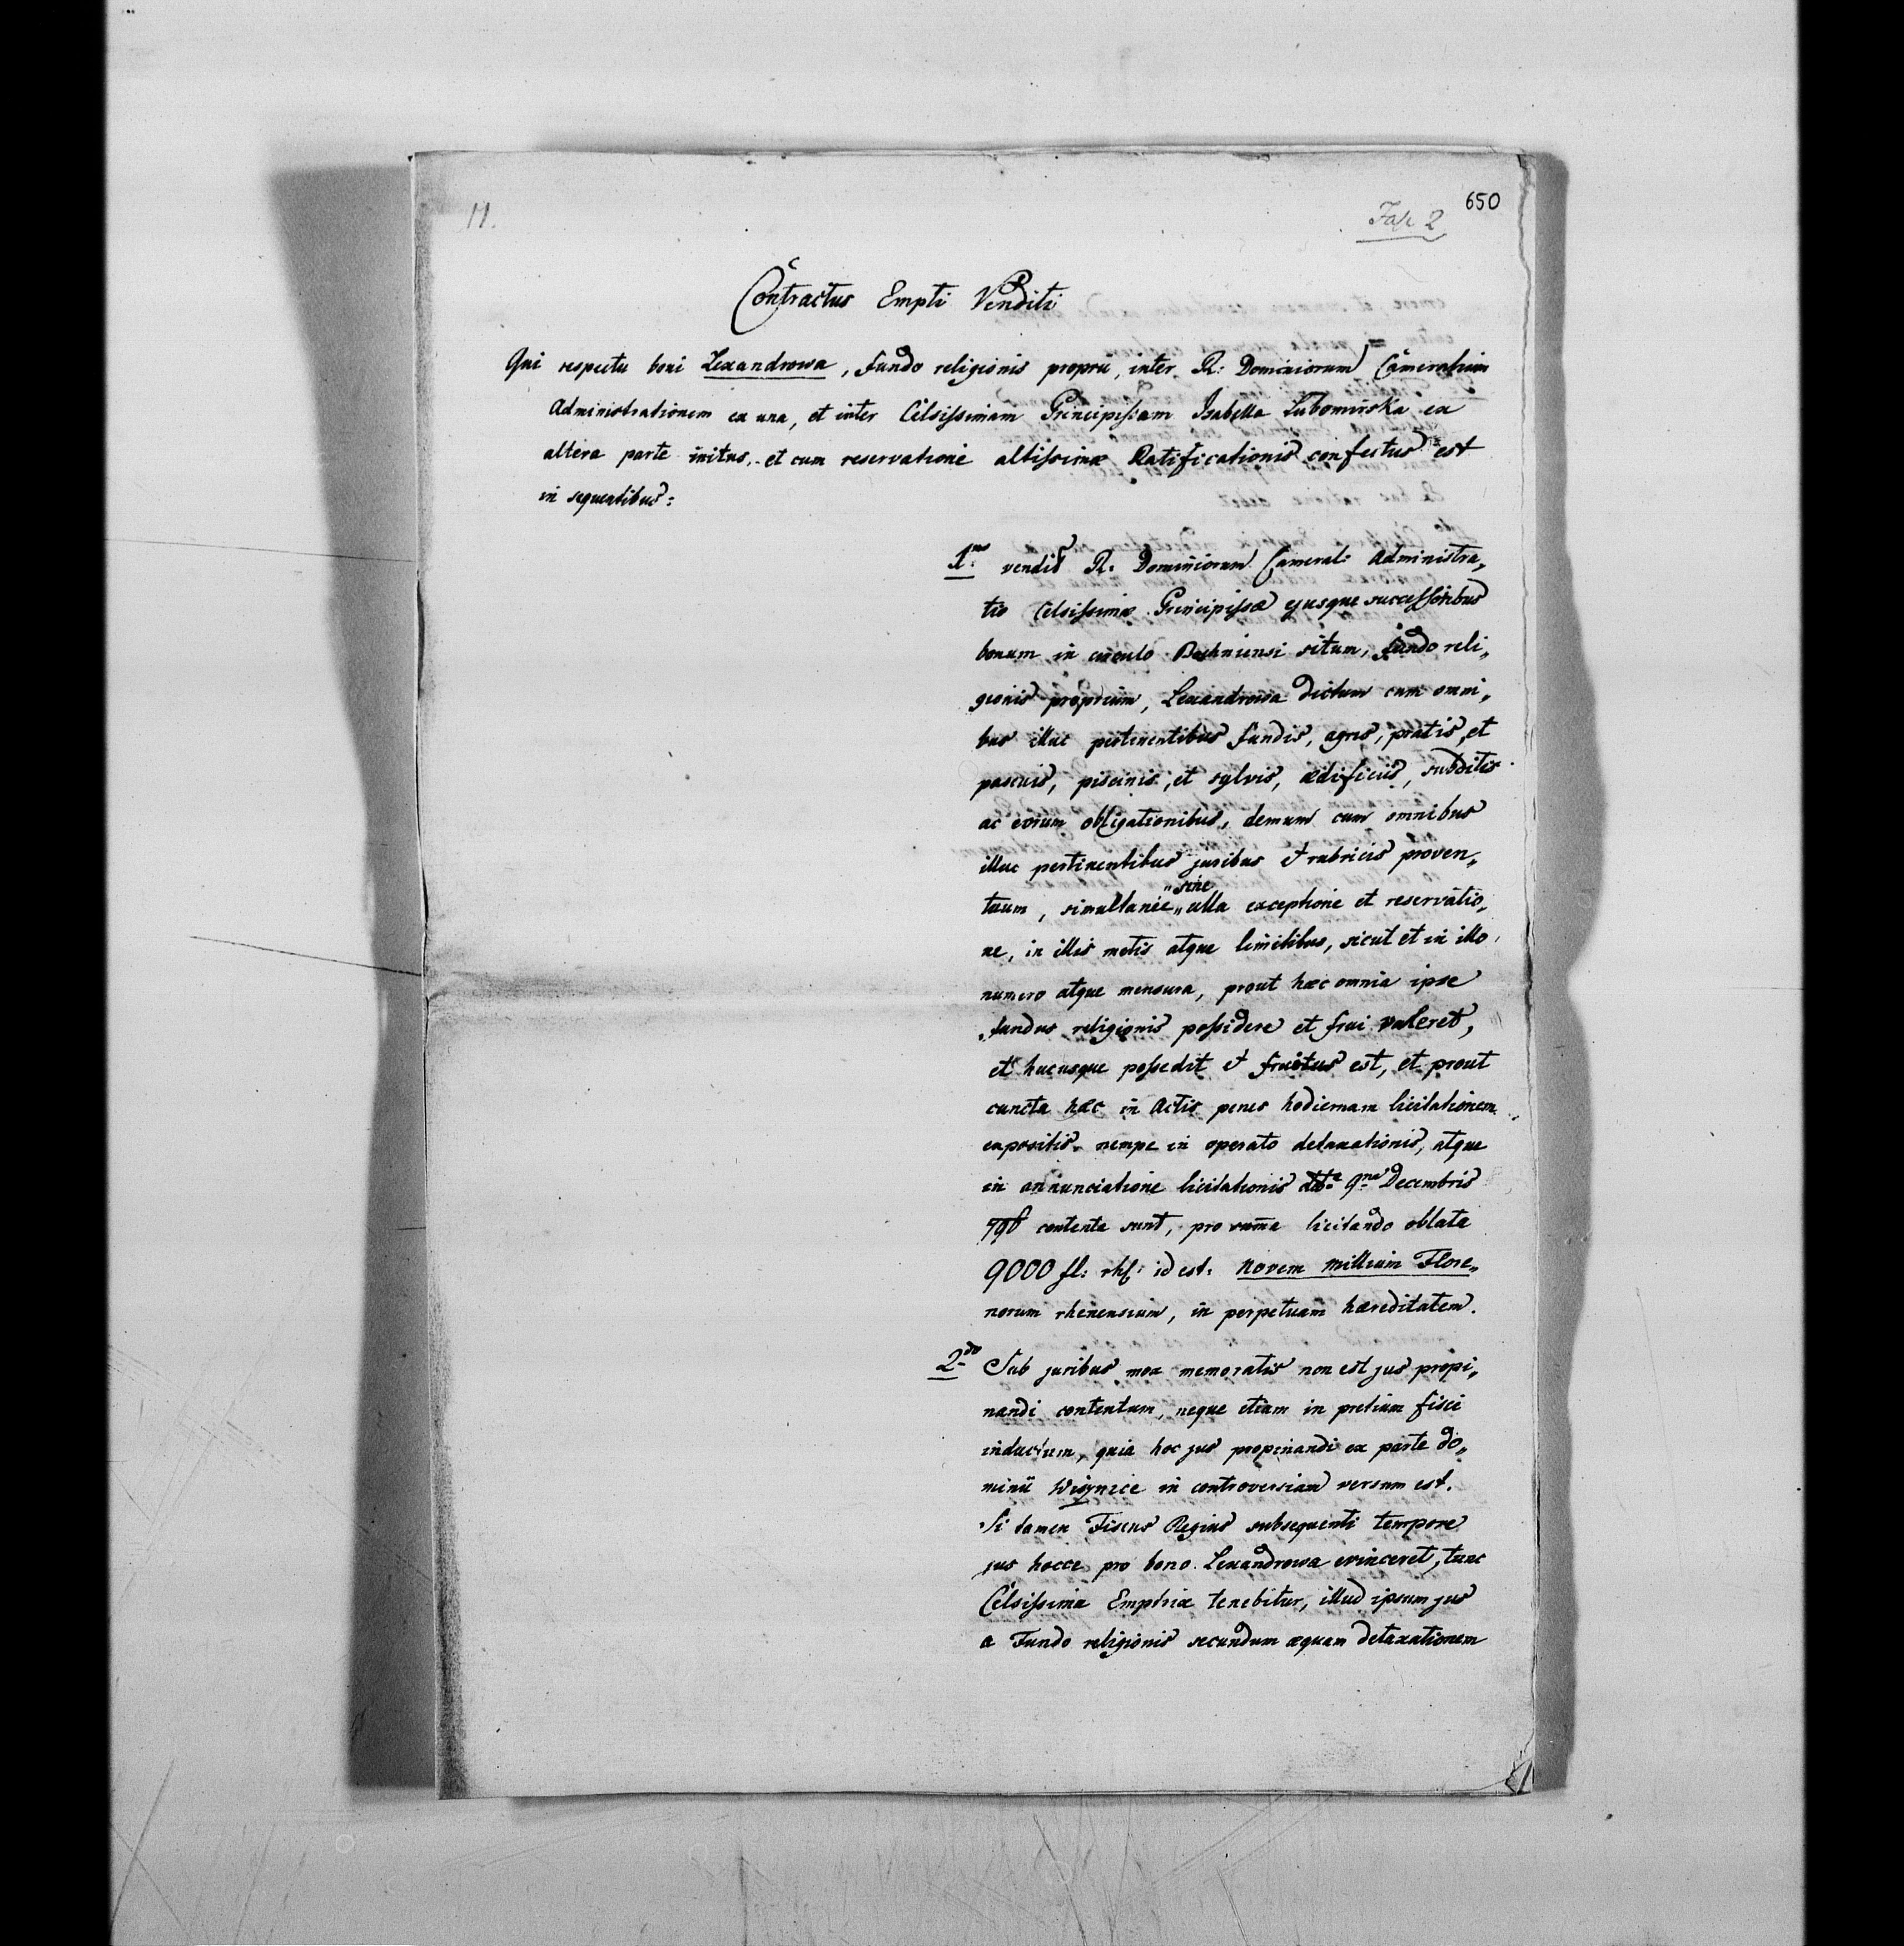 11.
Fasc 2
650
Contractus Empti Venditi
Qui respectu boni Lexandrowa, fundo religionis proprii, inter R: Dominiorum Cameralium
Administrationem ex una, et inter Celsissimam Principissam Isabella Lubomirska ex
altera parte initus, et cum reservatione altissimæ Ratificationis confectus est
in sequentibus:
1mo vendit R: Dominiorum Cameral: Administra„
tio Celsissimæ Principissæ ejusque successoribus
bonum in circulo Bochniensi situm, fundo reli„
gionis proprium, Lexandrowa dictum cum omni„
bus illuc pertinentibus fundis, agris, pratis, et
pascuis, piscinis, et sylvis, ædificiis, subditis
ac eorum obligationibus, demum cum omnibus
illuc pertinentibus juribus et rubricis proven„
tuum, simultanee „ sine „ ulla exceptione et reservatio„
ne, in illis metis atque limitibus, sicut et in illo
numero atque mensura, prout hæc omnia ipse
fundus religionis possidere et frui valeret,
et hucusque possedit et fructus est, et prout
cuncta hæc in Actis penes hodiernam licitationem
expositis, nempe in operato detaxationis, atque
in annunciatione licitationis ddto 9na Decembris
796 contenta sunt, pro suma licitando oblata
9000 fl: rhf: id est: Novem millium Flore„
norum rhenensium, in perpetuam hæreditatem.
2do Sub juribus mox memoratis non est jus propi„
nandi contentum, neque etiam in pretium fisci
inductum, quia hoc jus propinandi ex parte do„
minii Wisznice in controversiam versum est.
Si tamen Fiscus Regius subsequenti tempore
jus hocce pro bono Lexandrowa evinceret, tunc
Celsissima Emptrix tenebitur, illud ipsum jus
a Fundo religionis secundum æquam detaxationem